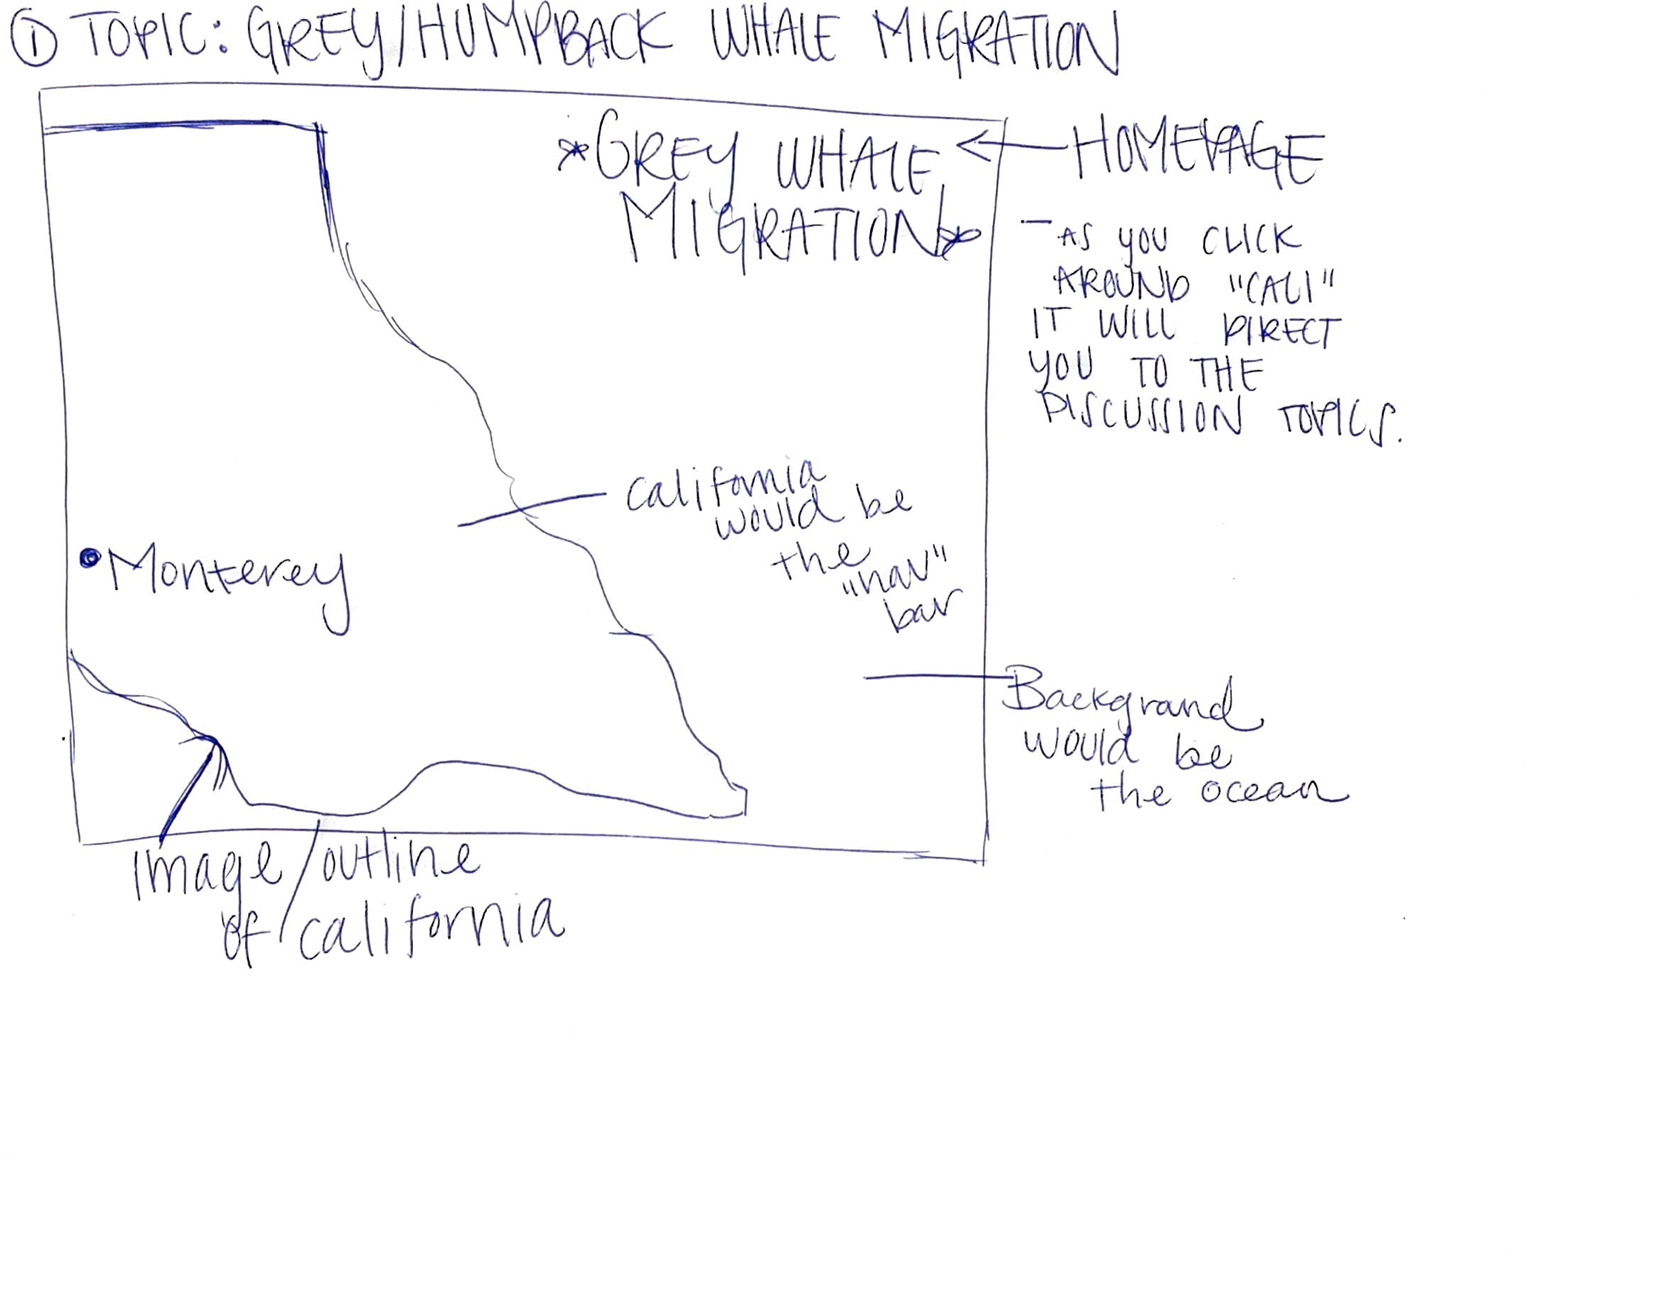 ① TOPIC: GREY/HUMPBACK WHALE MIGRATION
*GREY WHALE
MIGRATION*
HOMEPAGE
- AS YOU CLICK
AROUND "CALI"
IT WILL DIRECT
YOU TO THE
DISCUSSION TOPICS.
California
would be
the
"nav"
bar
Monterey
Background
would be
the ocean
Image/outline
of california